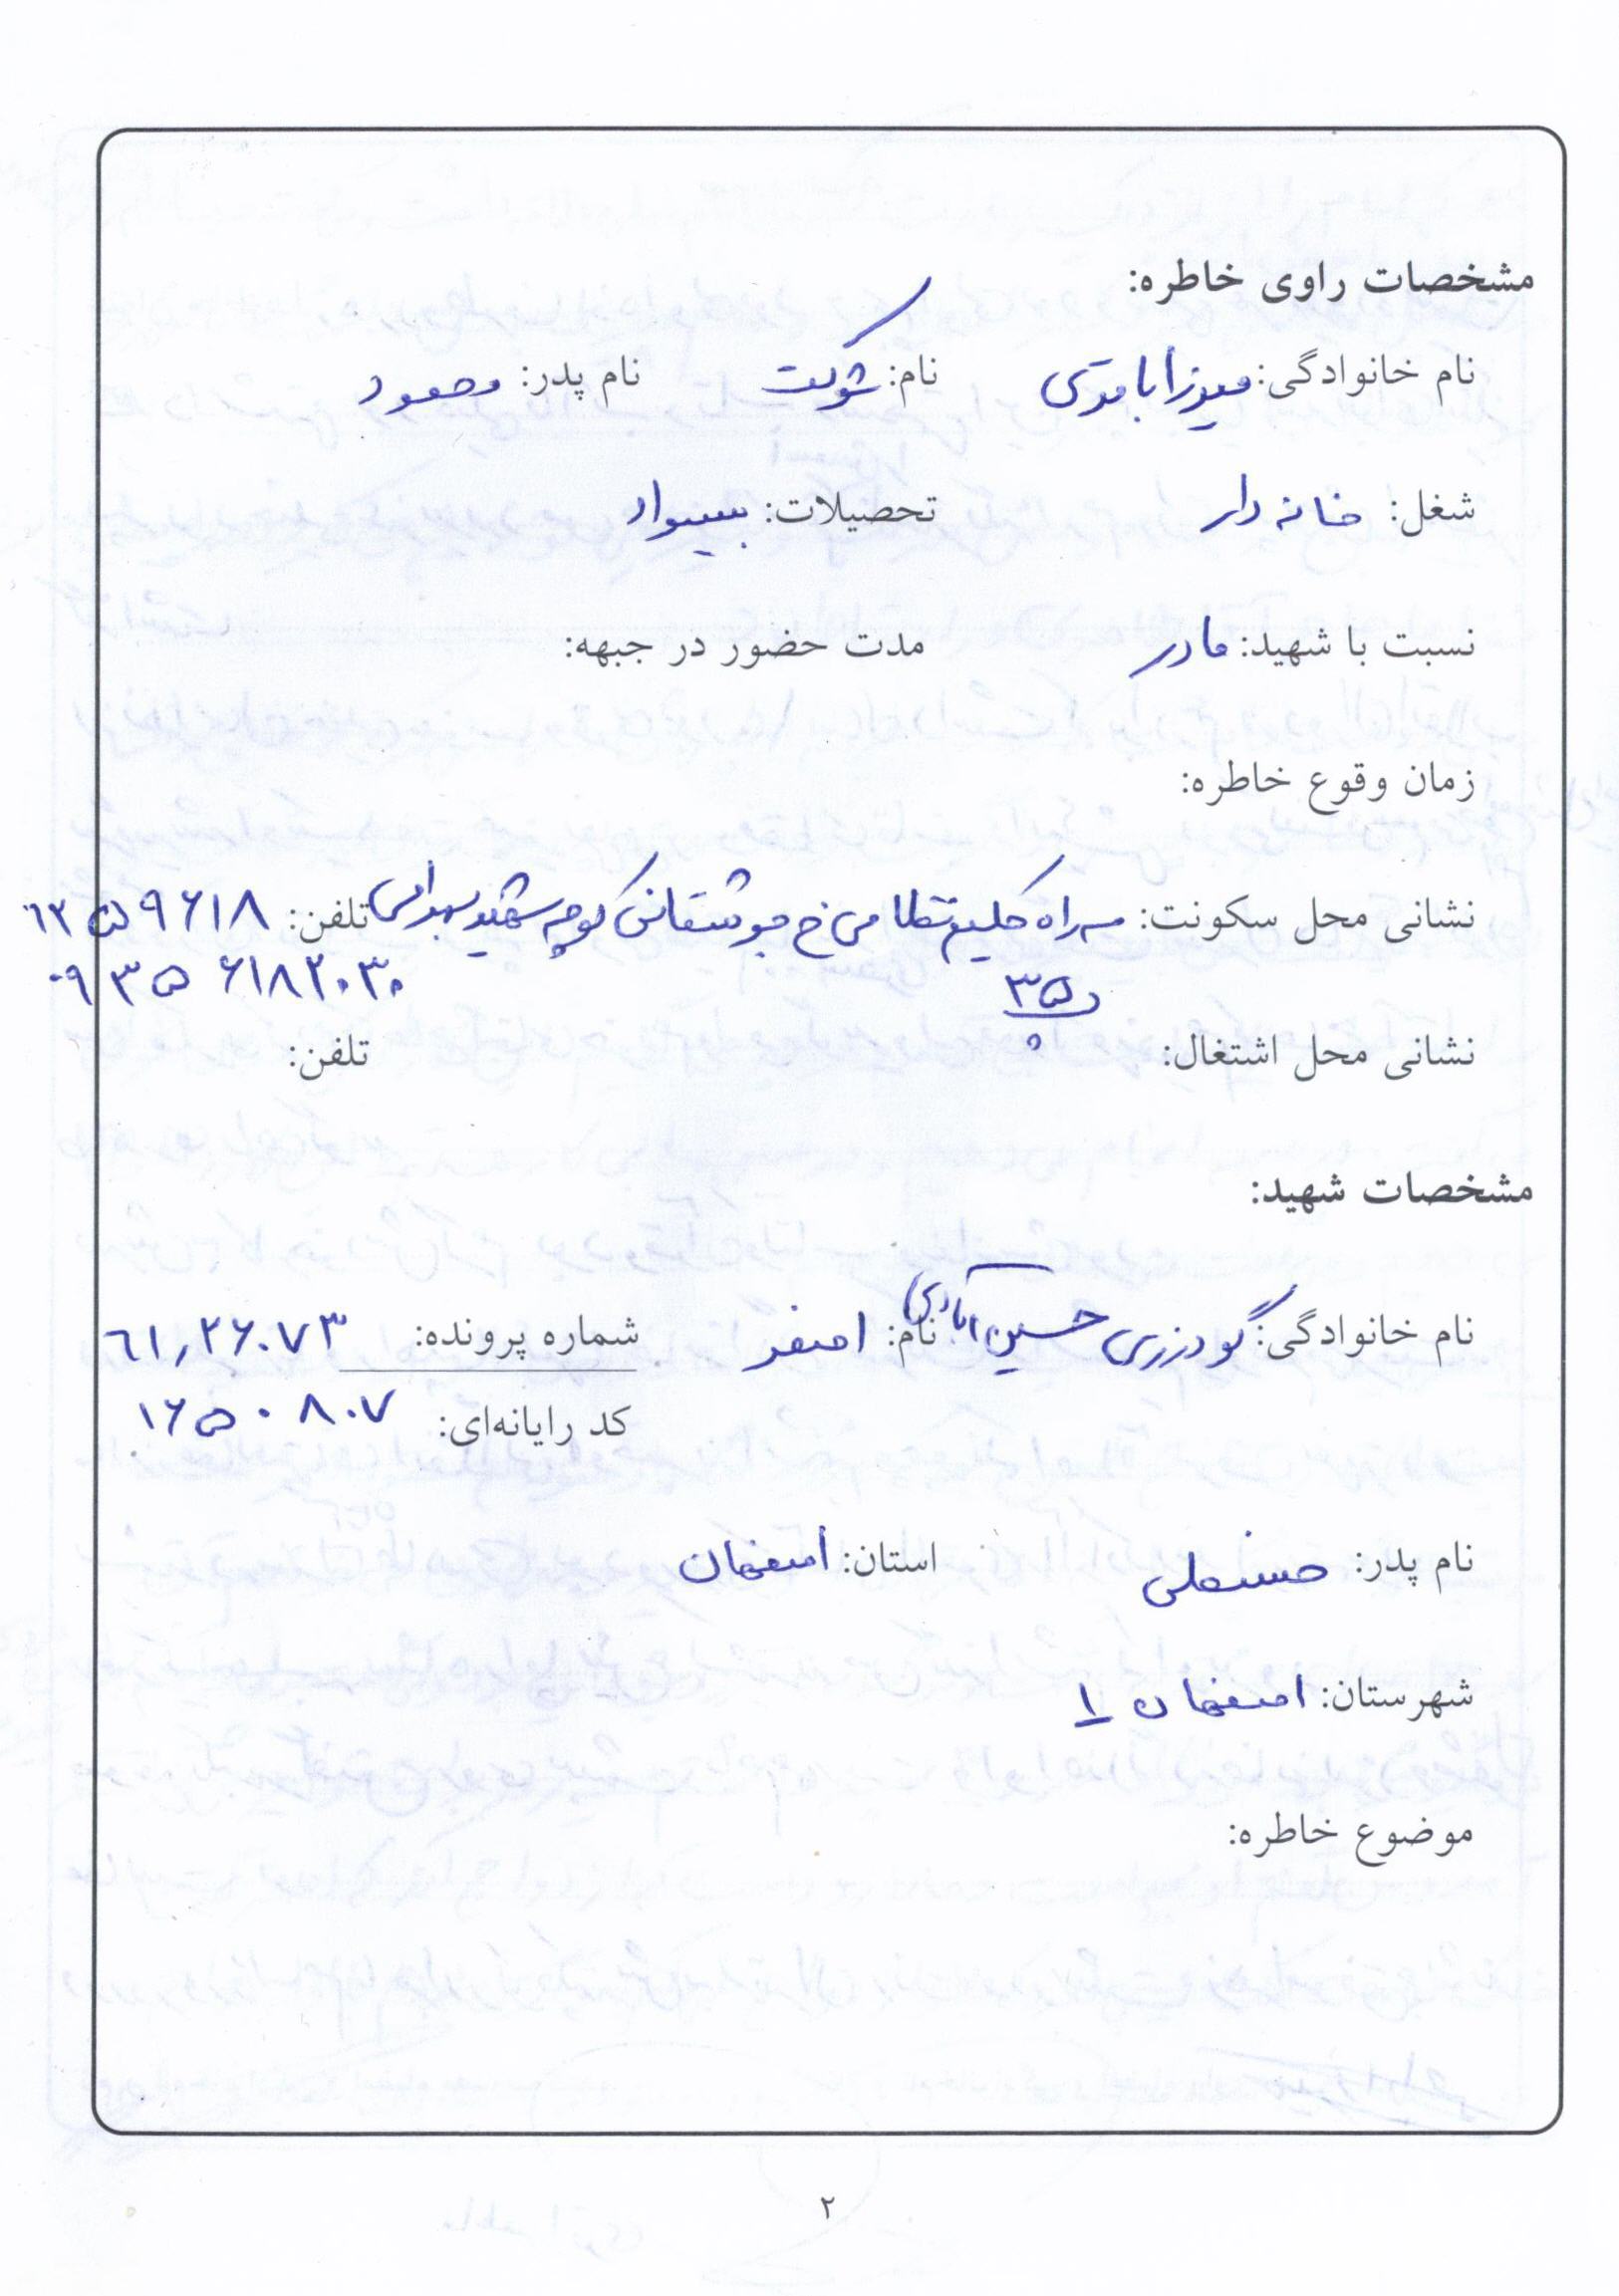 مشخصات راوی خاطره:
نام خانوادگی: میرزابابائی نام: شوکت نام پدر: محمود
شغل: خانه دار تحصیلات: بیسواد
نسبت با شهید: مادر مدت حضور در جبهه:
زمان وقوع خاطره:
نشانی محل سکونت: سه راه حکیم نظامی خ جوشقانی کوچه شهید بهرامی تلفن: ۶۲۵۹۶۱۸
۳۵ ۰۹۳۵۶۱۸۲۰۳۰
نشانی محل اشتغال: تلفن:
مشخصات شهید:
نام خانوادگی: گودرزی حسین آبادی نام: اصغر شماره پرونده: ۶۱٫۲۶۰۷۳
کد رایانه‌ای: ۱۶۵۰۸۰۷
نام پدر: حسنعلی استان: اصفهان
شهرستان: اصفهان ۱
موضوع خاطره:
۲